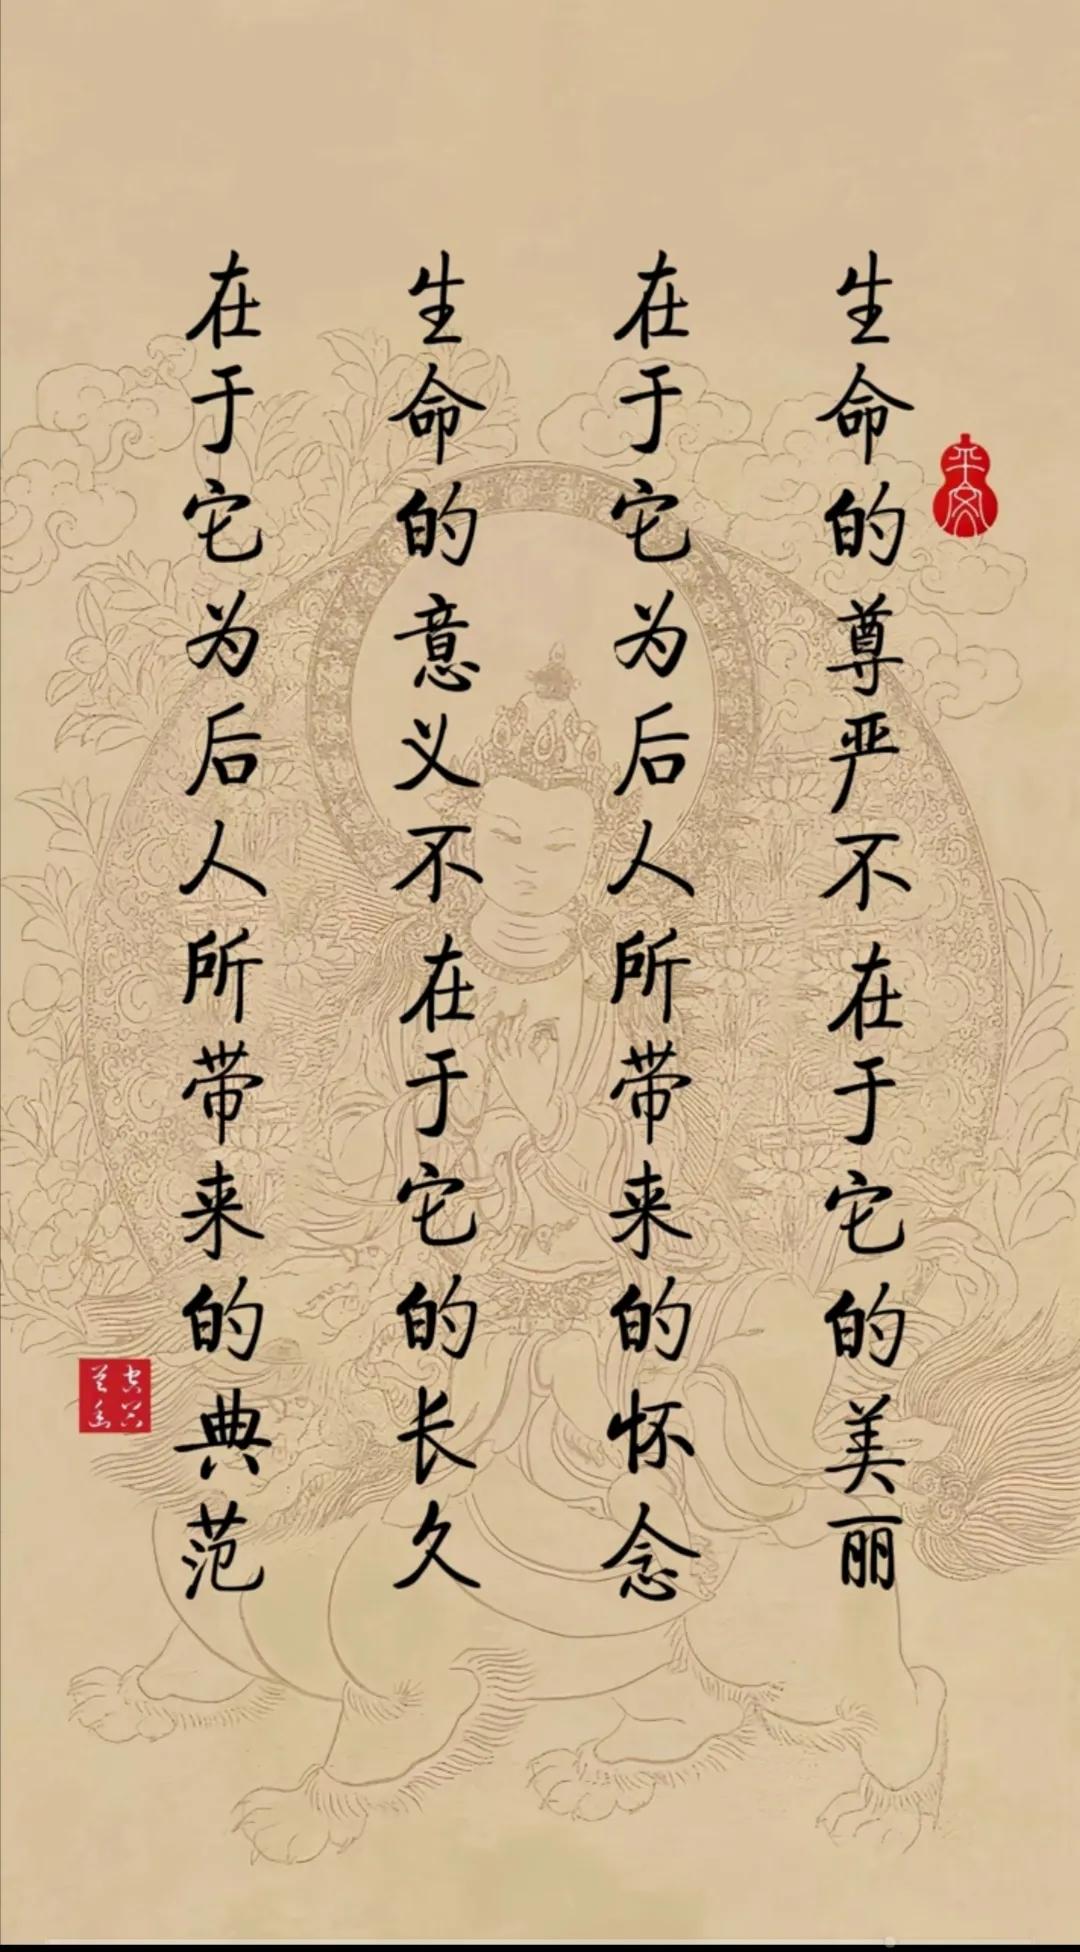 平安
生命的尊严不在于它的美丽
在于它为后人所带来的怀念
生命的意义不在于它的长久
在于它为后人所带来的典范